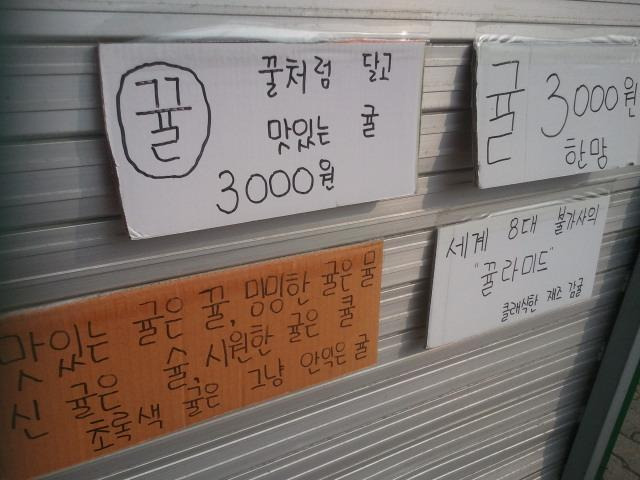 뀰
꿀처럼 달고
맛있는 귤
3000원
귤 3000원
한망
세계 8대 불가사의
"뀰라미드"
클래식한 제조 감귤
맛있는 귤은 뀰, 밍밍한 귤은 뮬
신 귤은 슐, 시원한 귤은 큘
초록색 귤은 그냥 안익은 귤